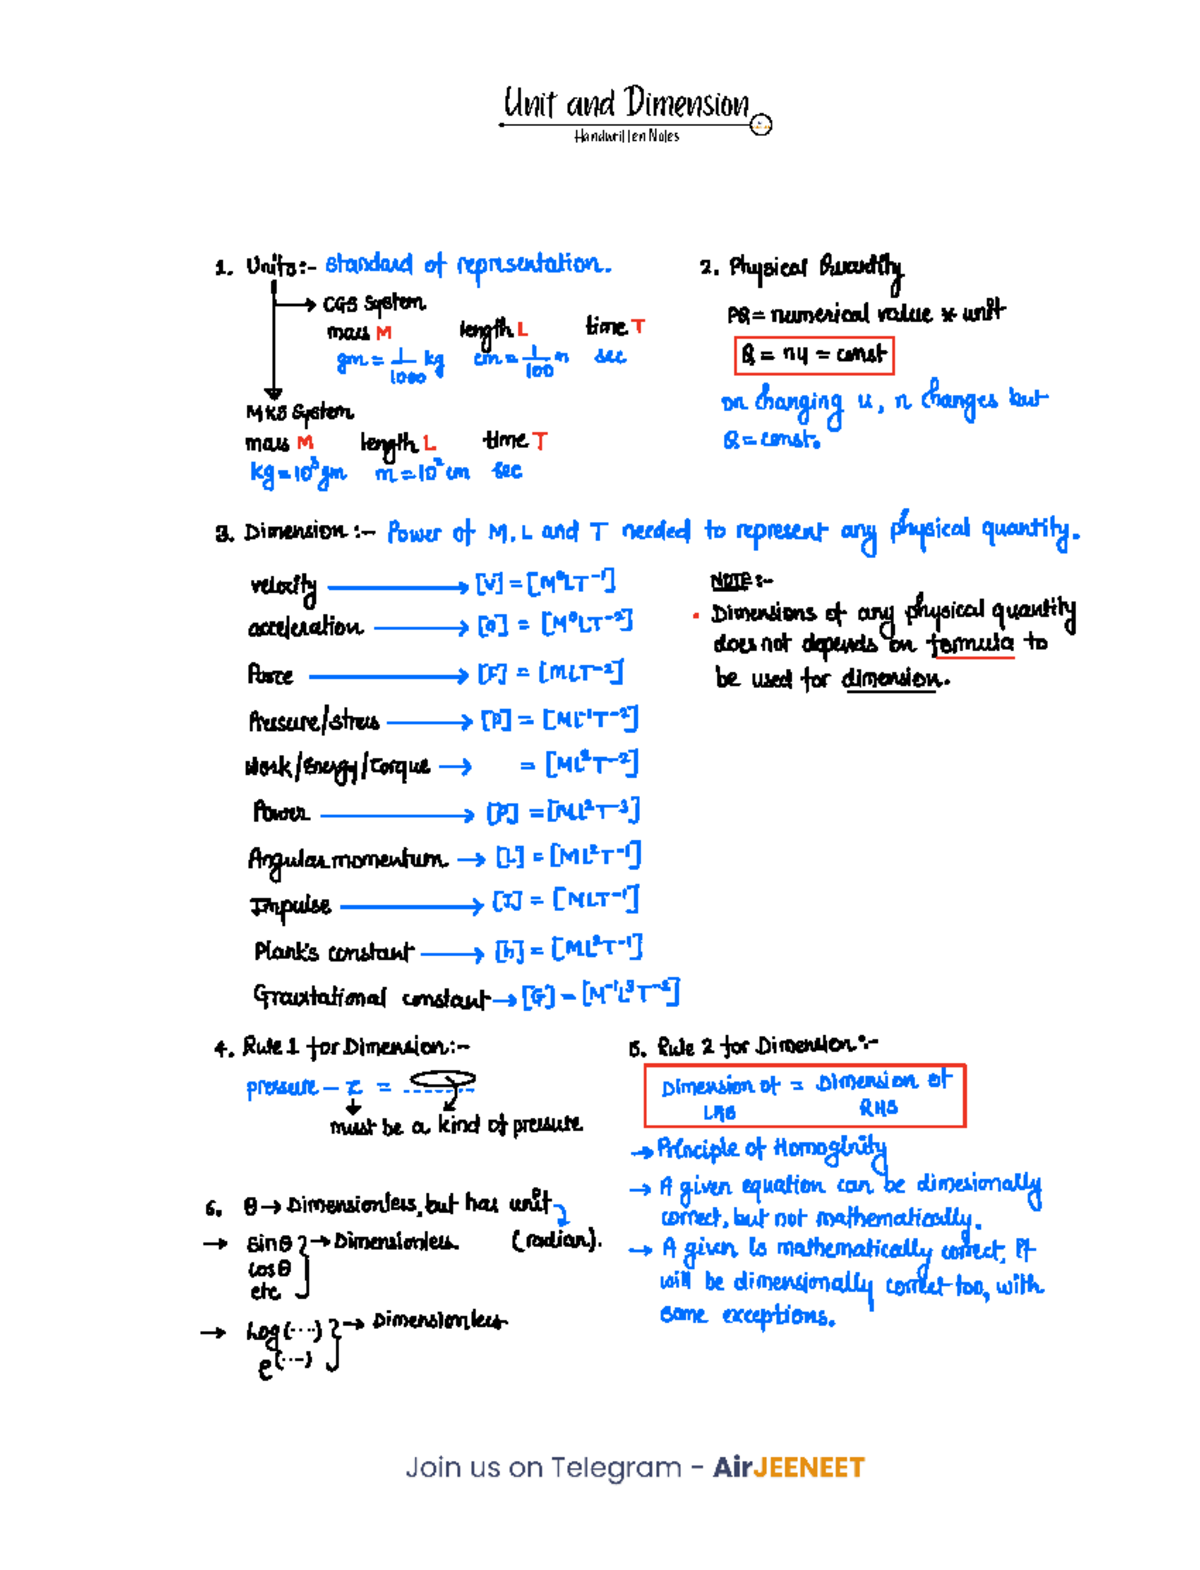 Unit and Dimension
Handwritten Notes
1. Units:- standard of representation.
CGS System
mass M length L time T
gm = 1/1000 kg cm = 1/100 m sec
MKS System
mass M length L time T
kg = 10³gm m = 10²cm sec
2. Physical Quantity
PQ = numerical value x unit
Q = nu = const
on changing u, n changes but
Q = const.
3. Dimension :- Power of M, L and T needed to represent any physical quantity.
velocity → [V] = [M⁰LT⁻¹]
acceleration → [a] = [M⁰LT⁻²]
Force → [F] = [MLT⁻²]
Pressure/stress → [P] = [ML⁻¹T⁻²]
Work/Energy/Torque → = [ML²T⁻²]
Power → [P] = [ML²T⁻³]
Angular momentum → [L] = [ML²T⁻¹]
Impulse → [I] = [MLT⁻¹]
Plank's constant → [h] = [ML²T⁻¹]
Gravitational constant → [G] = [M⁻¹L³T⁻²]
NOTE :-
• Dimensions of any physical quantity
does not depends on formula to
be used for dimension.
4. Rule 1 for Dimension:-
pressure - x =
must be a kind of pressure
5. Rule 2 for Dimension:-
Dimension of = Dimension of
LHS RHS
→ Principle of Homoginity
→ A given equation can be dimesionally
correct, but not mathematically.
→ A given is mathematically correct, it
will be dimensionally correct too, with
some exceptions.
6. θ → Dimensionless, but has unit
(radian).
→ sinθ → Dimensionless.
cosθ
etc
→ Log(...) → Dimensionless
e(...)
Join us on Telegram - AirJEENEET